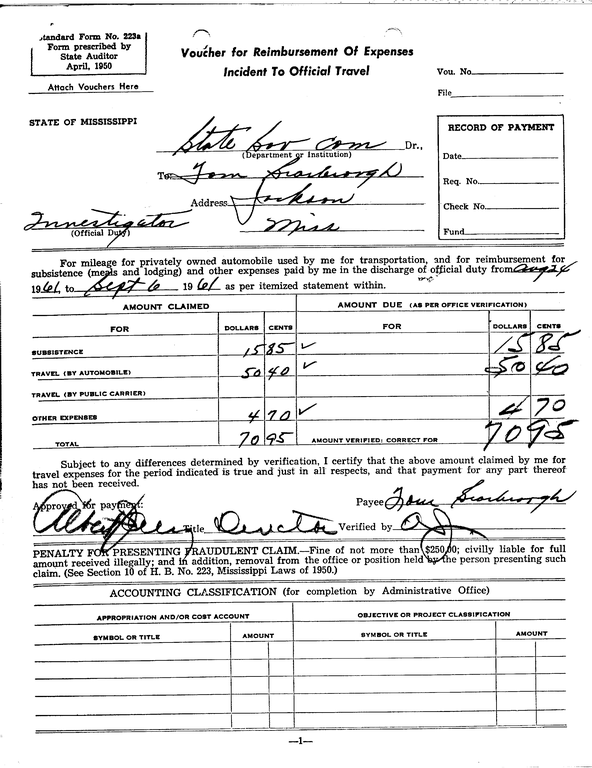 Standard Form No. 223a
Form prescribed by
State Auditor
April, 1950
Attach Vouchers Here
Voucher for Reimbursement Of Expenses
Incident To Official Travel
Vou. No.
File
STATE OF MISSISSIPPI
State Sov Com Dr.,
(Department or Institution)
To: Tom Scarbrough
Address Jackson
Investigator Miss
(Official Duty)
RECORD OF PAYMENT
Date
Req. No.
Check No.
Fund
For mileage for privately owned automobile used by me for transportation, and for reimbursement for
subsistence (meals and lodging) and other expenses paid by me in the discharge of official duty from Aug 24
1961, to Sept 6 1961 as per itemized statement within.
AMOUNT CLAIMED AMOUNT DUE (AS PER OFFICE VERIFICATION)
FOR DOLLARS CENTS FOR DOLLARS CENTS
SUBSISTENCE 15 85 ✓ 15 85
TRAVEL (BY AUTOMOBILE) 50 40 ✓ 50 40
TRAVEL (BY PUBLIC CARRIER)
OTHER EXPENSES 4 70 ✓ 4 70
TOTAL 70 95 AMOUNT VERIFIED; CORRECT FOR 70 95
Subject to any differences determined by verification, I certify that the above amount claimed by me for
travel expenses for the period indicated is true and just in all respects, and that payment for any part thereof
has not been received.
Approved for payment: Payee Tom Scarbrough
Albert Jones Title Director Verified by
PENALTY FOR PRESENTING FRAUDULENT CLAIM.—Fine of not more than $250.00; civilly liable for full
amount received illegally; and in addition, removal from the office or position held by the person presenting such
claim. (See Section 10 of H. B. No. 223, Mississippi Laws of 1950.)
ACCOUNTING CLASSIFICATION (for completion by Administrative Office)
APPROPRIATION AND/OR COST ACCOUNT OBJECTIVE OR PROJECT CLASSIFICATION
SYMBOL OR TITLE AMOUNT SYMBOL OR TITLE AMOUNT
—1—